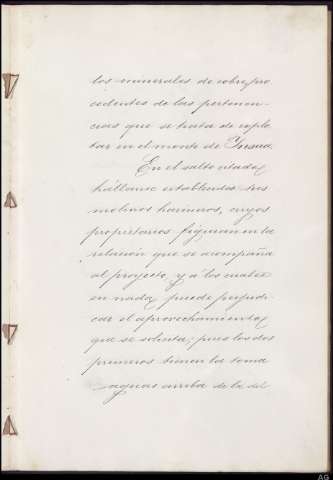 los minerales de cobre, pro
cedentes de las pertenen-
cias que se trata de explo
tar en el monte de Insua.
En el salto citado,
hállanse establecidos tres
molinos harineros, cuyos
propietarios figuran en la
relación que se acompaña
al proyecto, y á los cuales
en nada puede perjudi-
car el aprovechamiento,
que se solicita; pues los dos
primeros tienen la toma
aguas arriba de la del
AG